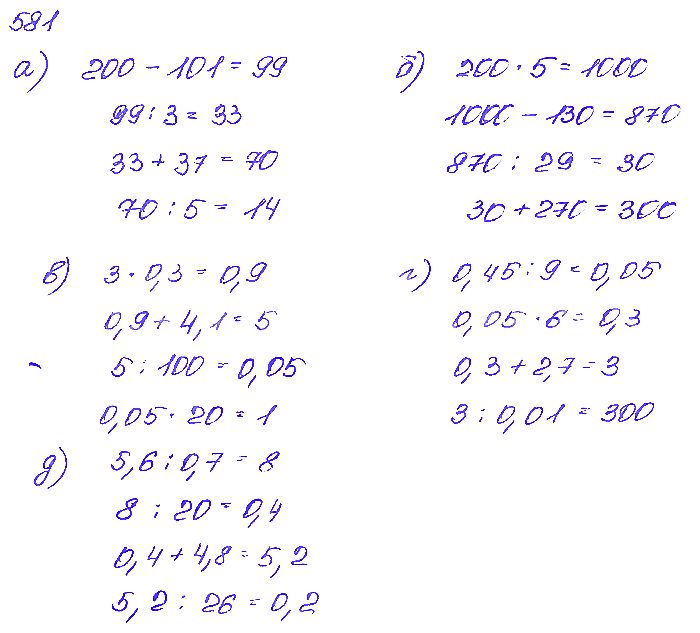 581
а) 200 - 101 = 99
99 : 3 = 33
33 + 37 = 70
70 : 5 = 14
б) 200 · 5 = 1000
1000 - 130 = 870
870 : 29 = 30
30 + 270 = 300
в) 3 · 0,3 = 0,9
0,9 + 4,1 = 5
5 : 100 = 0,05
0,05 · 20 = 1
г) 0,45 : 9 = 0,05
0,05 · 6 = 0,3
0,3 + 2,7 = 3
3 : 0,01 = 300
д) 5,6 : 0,7 = 8
8 : 20 = 0,4
0,4 + 4,8 = 5,2
5,2 : 26 = 0,2